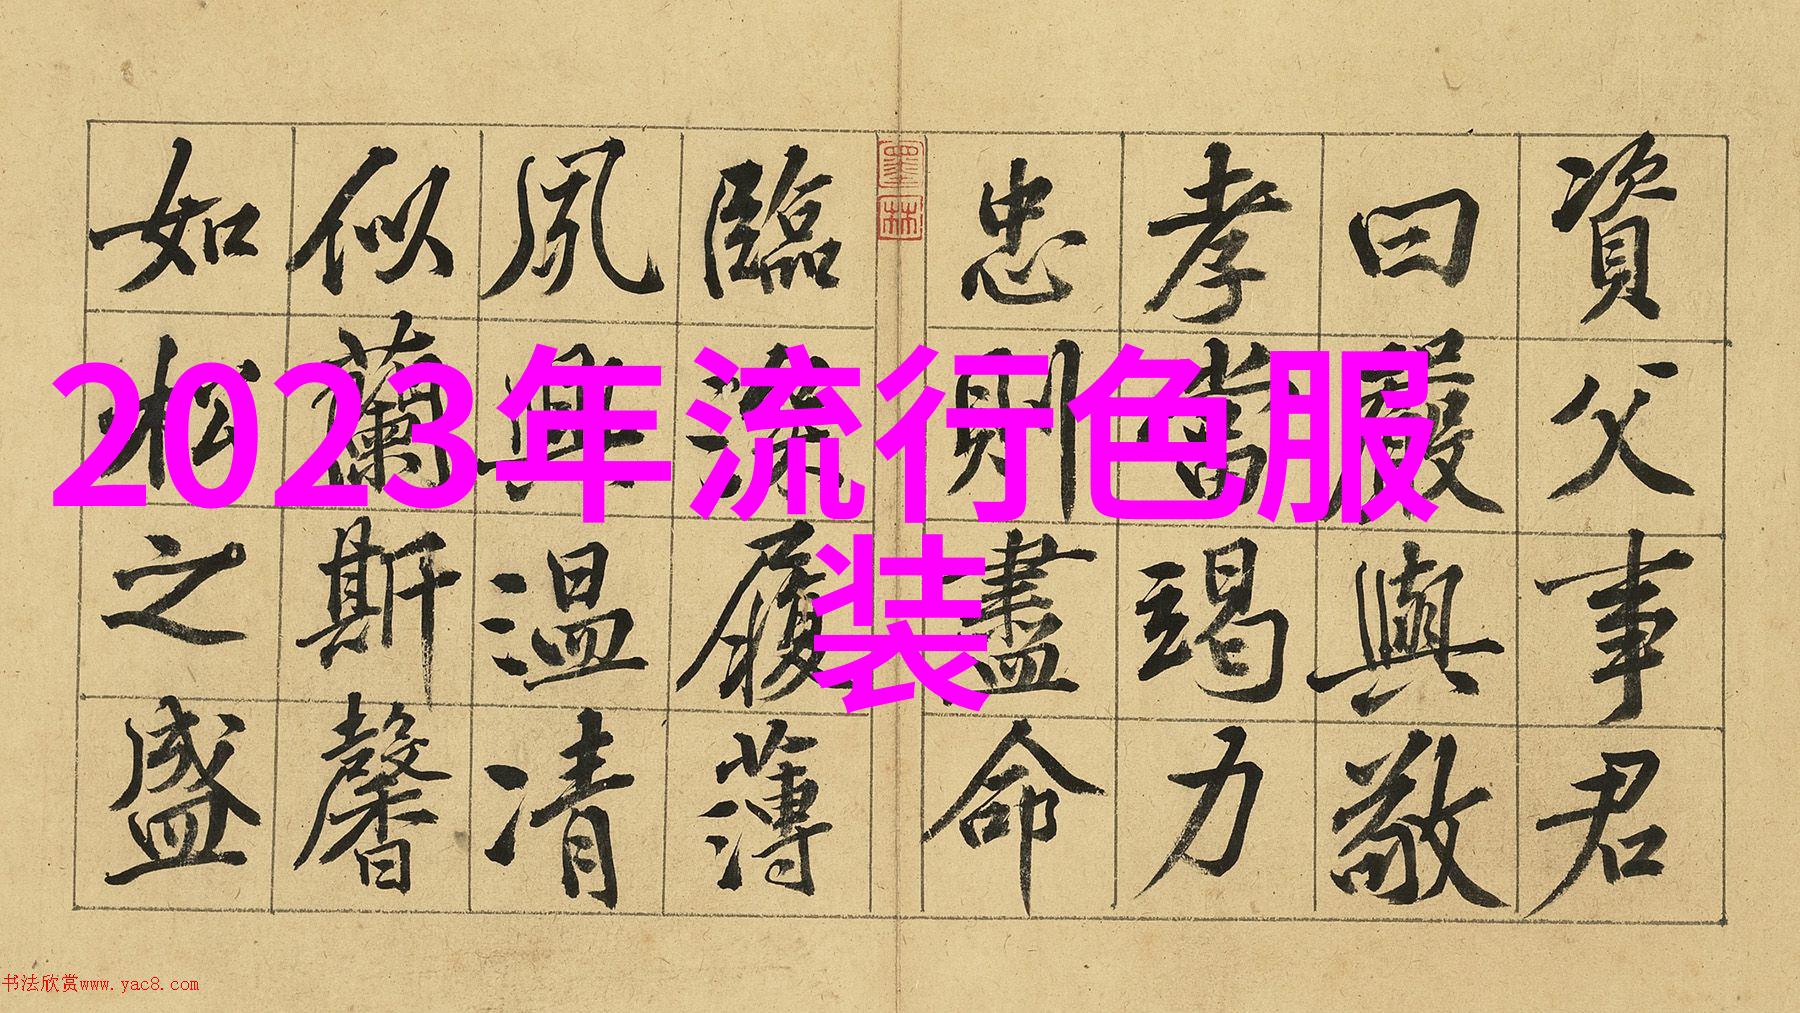 資父事君
曰嚴與敬
孝當竭力
忠則盡命
墨林
臨深履薄
夙興温凊
似蘭斯馨
如松之盛
2023年流行色服
装
书法欣赏www.yac8.com